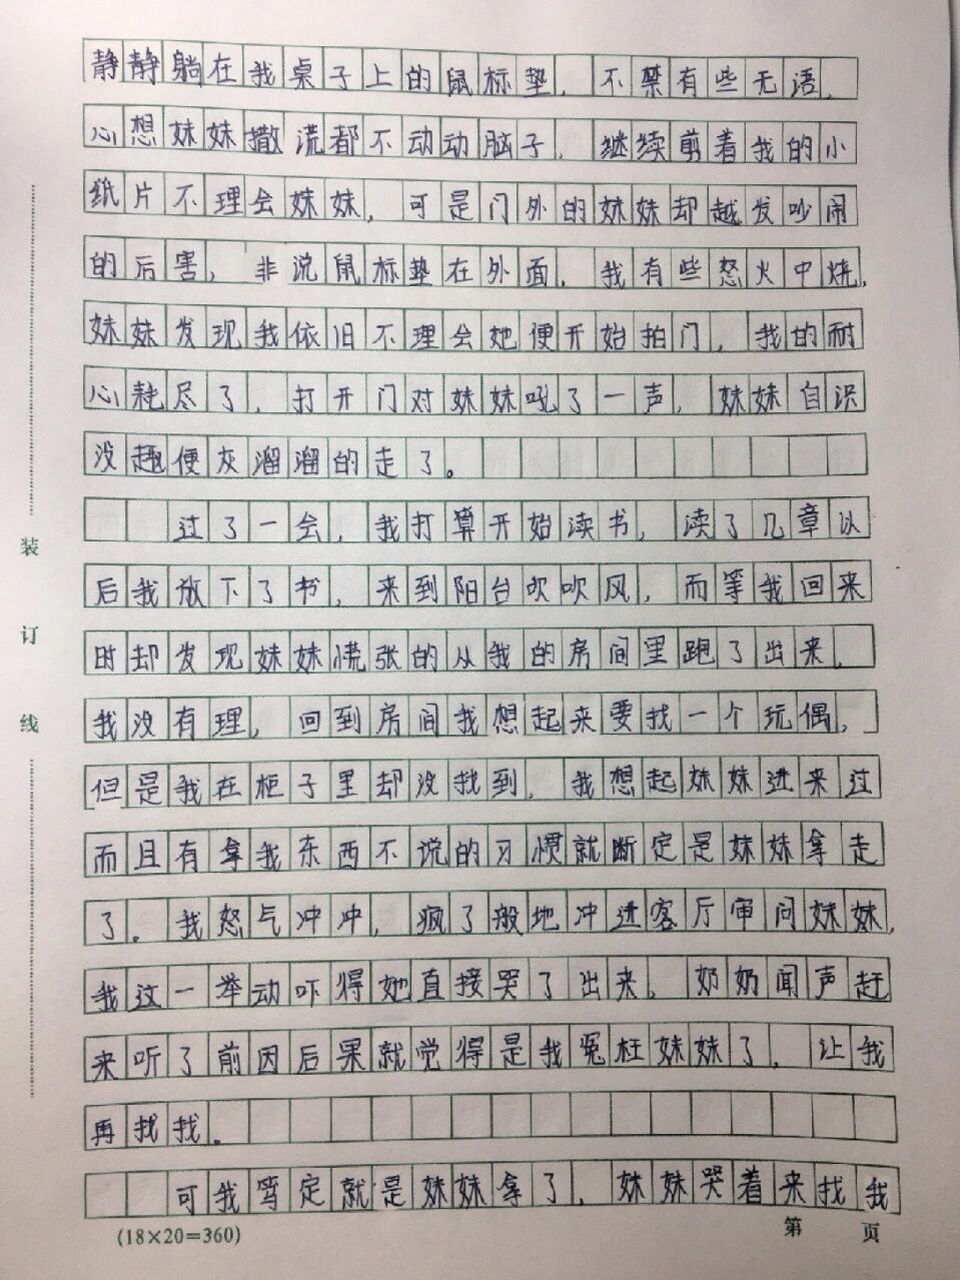 静静躺在我桌子上的鼠标垫，不禁有些无语，
心想妹妹撒谎都不动动脑子，继续剪着我的小
纸片不理会妹妹，可是门外的妹妹却越发吵闹
的后害，非说鼠标垫在外面，我有些怒火中烧，
妹妹发现我依旧不理会她便开始拍门，我的耐
心耗尽了，打开门对妹妹吼了一声，妹妹自识
没趣便灰溜溜的走了。
过了一会，我打算开始读书，读了几章以
后我放下了书，来到阳台吹吹风，而等我回来
时却发现妹妹慌张的从我的房间里跑了出来，
我没有理，回到房间我想起来要找一个玩偶，
但是我在柜子里却没找到，我想起妹妹进来过
而且有拿我东西不说的习惯就断定是妹妹拿走
了。我怒气冲冲，疯了般地冲进客厅审问妹妹，
我这一举动吓得她直接哭了出来。奶奶闻声赶
来听了前因后果就觉得是我冤枉妹妹了，让我
再找找。
可我笃定就是妹妹拿了，妹妹哭着来找我
装
订
线
(18×20=360)
第 页